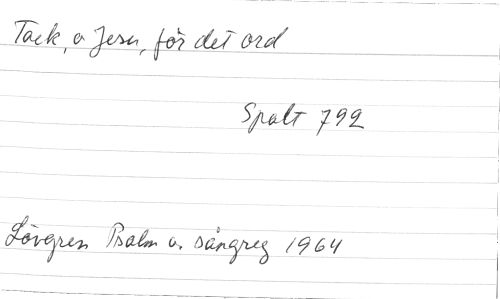 Tack, o Jesu, för det ord
Spalt 792
Lövgren Psalm o. sångreg 1964